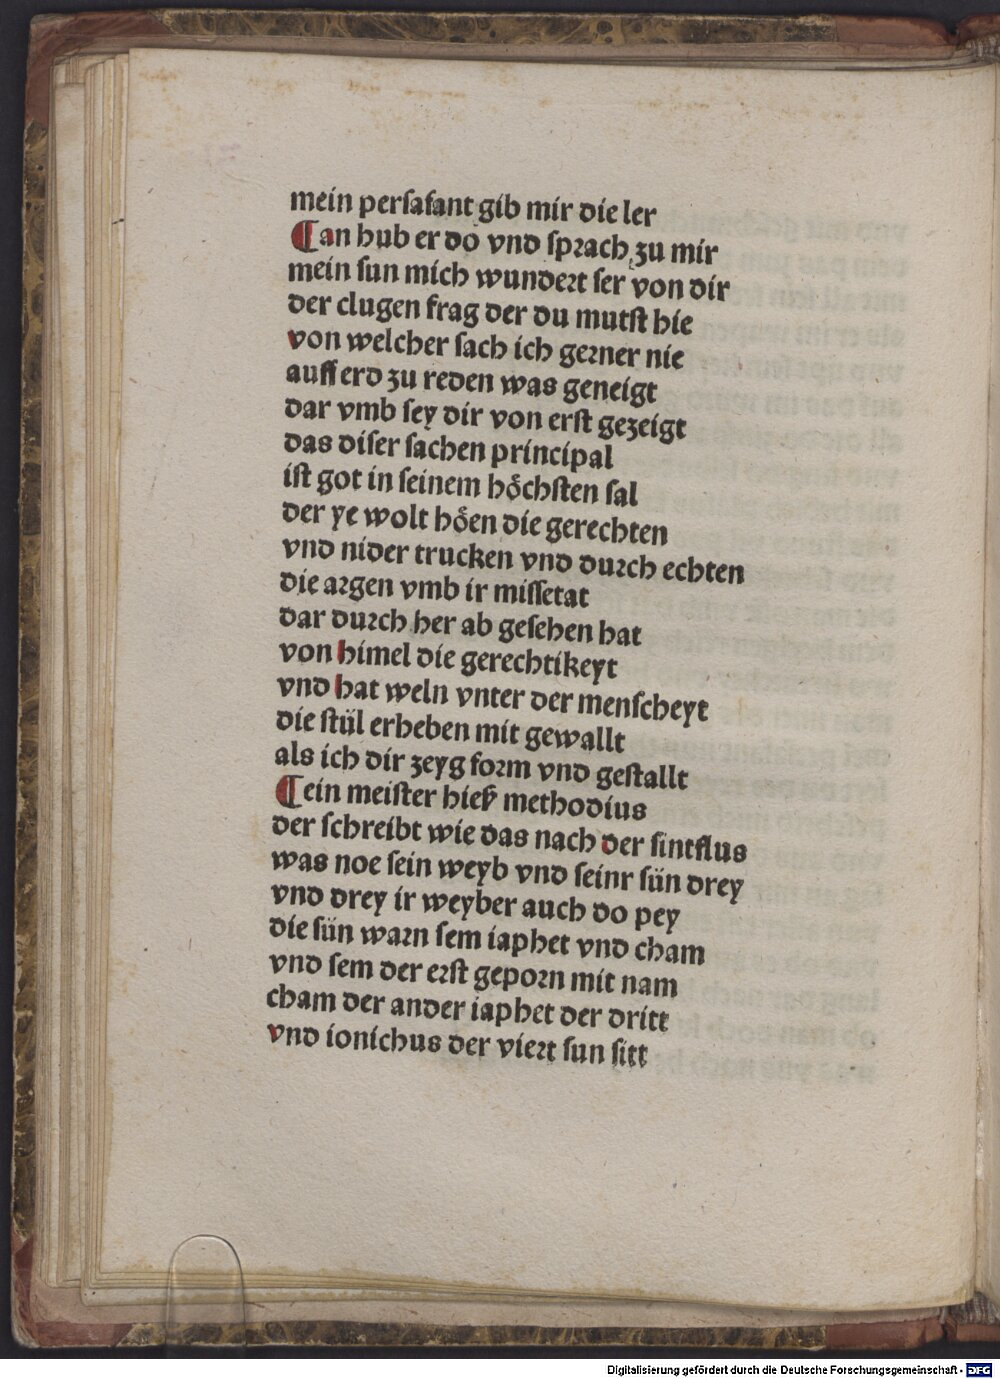 mein perſafant gib mir die ler
¶an hub er do vnd ſprach zu mir
mein ſun mich wundert ſer von dir
der clugen frag der du mutſt hie
von welcher ſach ich gerner nie
auff erd zu reden was geneigt
dar vmb ſey dir von erſt gezeigt
das diſer ſachen principal
iſt got in ſeinem hoͤchſten ſal
der ye wolt hoͤen die gerechten
vnd nider trucken vnd durch echten
die argen vmb ir miſſetat
dar durch her ab geſehen hat
von himel die gerechtikeyt
vnd hat weln vnter der menſcheyt
die ſtül erheben mit gewallt
als ich dir zeyg form vnd geſtallt
¶ein meiſter hieß methodius
der ſchreibt wie das nach der ſintflus
was noe ſein weyb vnd ſeinr ſün drey
vnd drey ir weyber auch do pey
die ſün warn ſem iaphet vnd cham
vnd ſem der erſt geporn mit nam
cham der ander iaphet der dritt
vnd ionichus der viert ſun ſitt
Digitalisierung gefördert durch die Deutsche Forschungsgemeinschaft - DFG